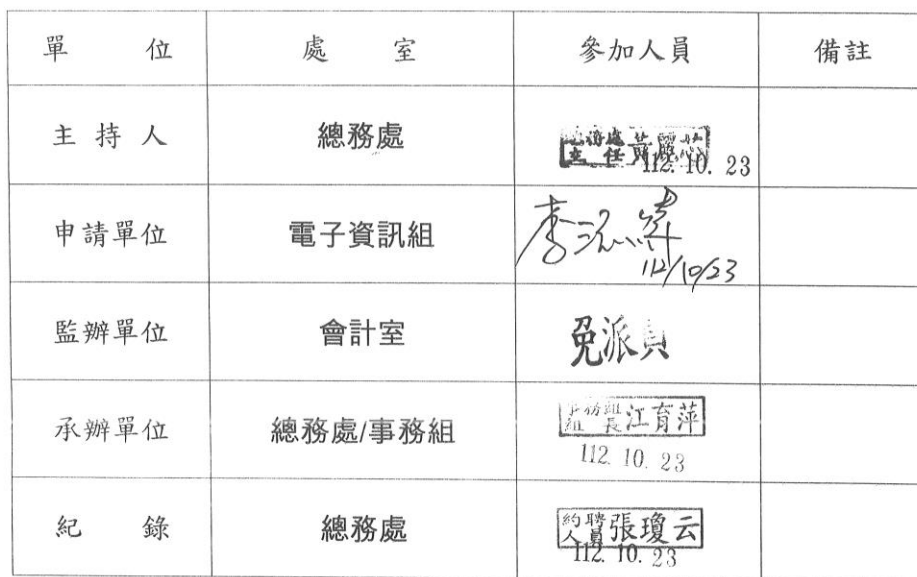 單 位 處 室 參加人員 備註
主 持 人 總務處
主 任
112. 10. 23
申請單位 電子資訊組 李
112/10/23
監辦單位 會計室 免派員
承辦單位 總務處/事務組 事務組
組 長 江育萍
112. 10. 23
紀 錄 總務處 約聘
人員 張瓊云
112. 10. 23